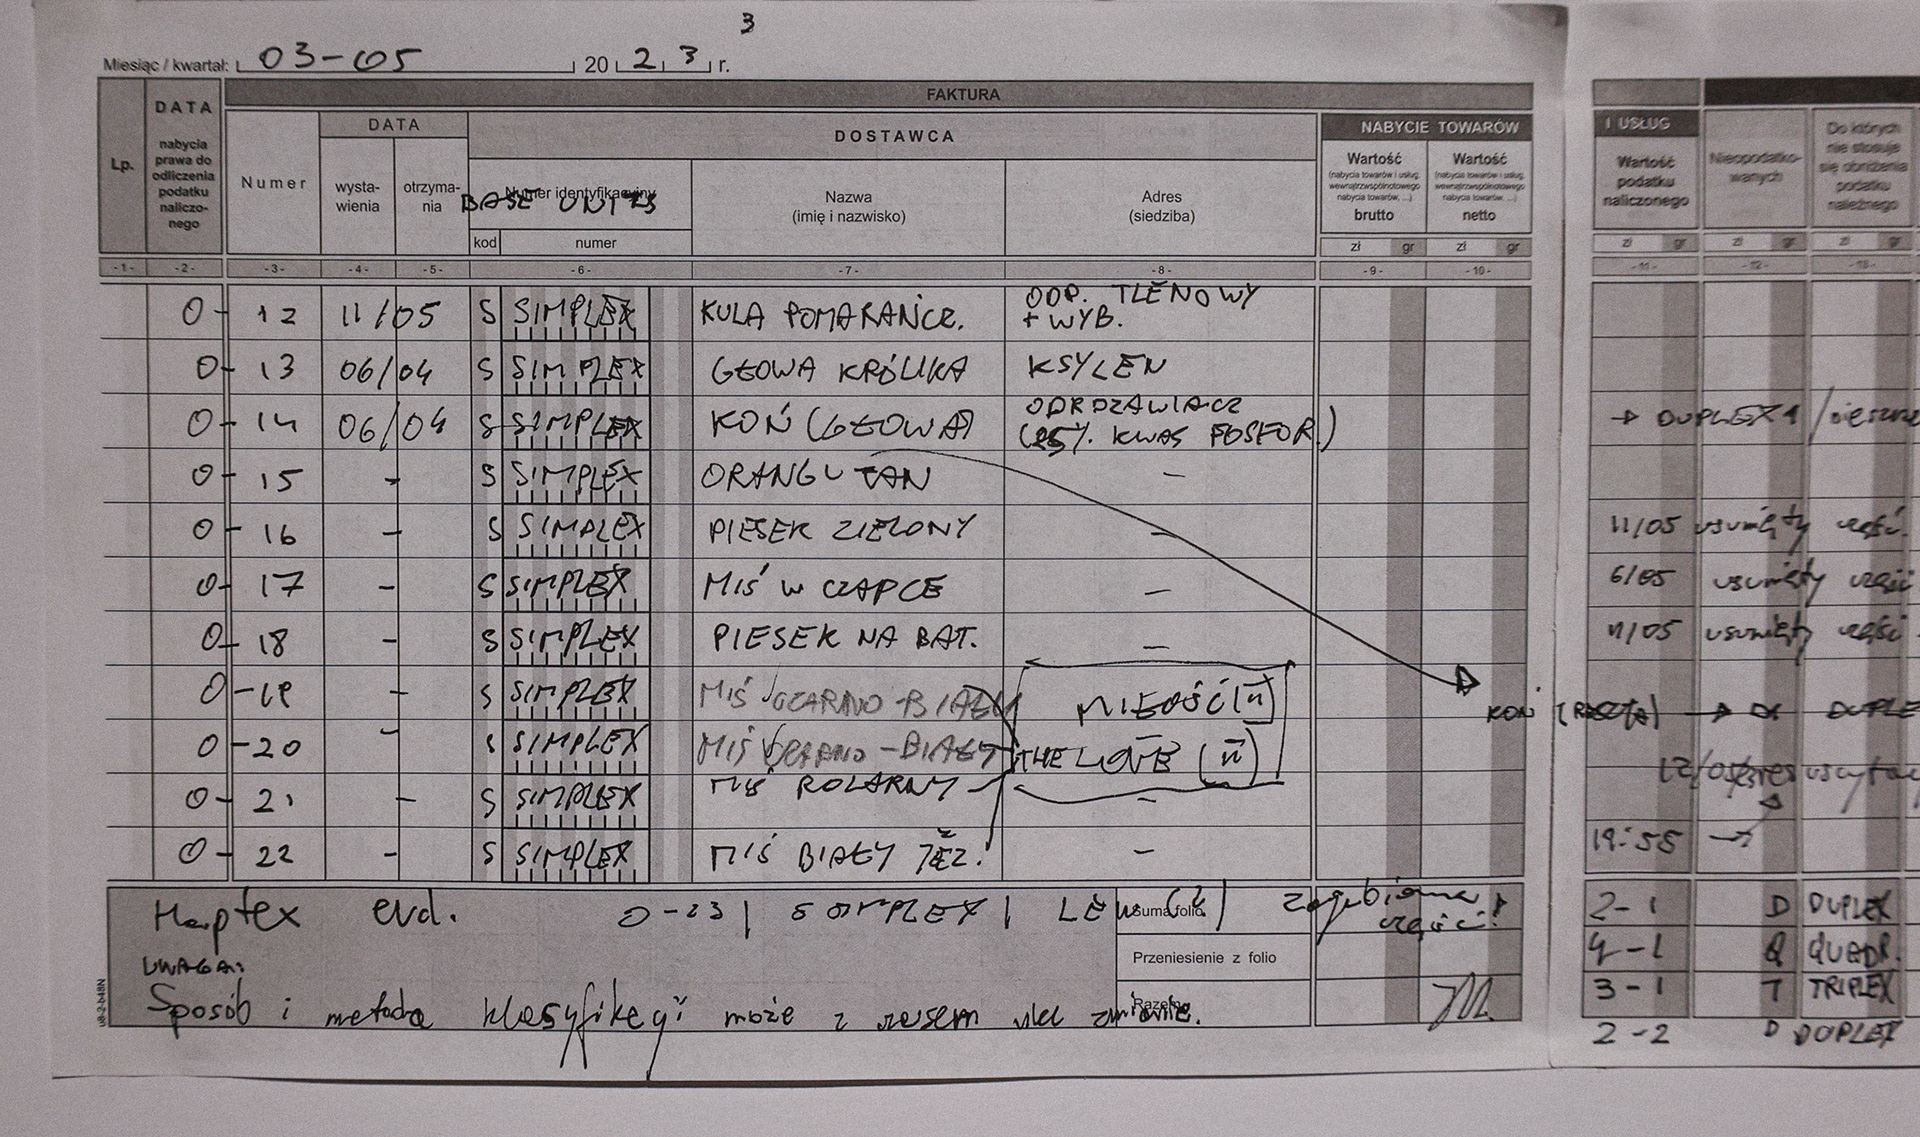 3
Miesiąc / kwartał: 03-05 2023 r.
FAKTURA
Lp.
DATA
nabycia prawa do odliczenia podatku naliczo-nego
Numer
DATA
wysta-wienia
otrzyma-nia
DOSTAWCA
Numer identyfikacyjny
BASE UNITS
kod numer
Nazwa
(imię i nazwisko)
Adres
(siedziba)
NABYCIE TOWARÓW
Wartość
(nabycia towarów i usług, wewnątrzwspólnotowego nabycia towarów, ...)
brutto
Wartość
(nabycia towarów i usług, wewnątrzwspólnotowego nabycia towarów, ...)
netto
I USŁUG
Wartość podatku naliczonego
Nieopodatko-wanych
Do których nie stosuje się obniżenia podatku należnego
zł gr zł gr zł gr zł gr zł gr
-1- -2- -3- -4- -5- -6- -7- -8- -9- -10- -11- -12- -13-
0-12 11/05 S SIMPLEX KULA POMARAŃCZ. ODP. TLENOWY + WYB.
0-13 06/04 S SIMPLEX GŁOWA KRÓLIKA KSYLEN
0-14 06/04 S SIMPLEX KOŃ (GŁOWA) ODRDZAWIACZ (25% KWAS FOSFOR.) → DUPLEX 1
0-15 - S SIMPLEX ORANGUTAN -
0-16 - S SIMPLEX PIESEK ZIELONY - 11/05 usunięty część.
0-17 - S SIMPLEX MIŚ W CZAPCE - 6/05 usunięty część
0-18 - S SIMPLEX PIESEK NA BAT. - 11/05 usunięty część
0-19 - S SIMPLEX MIŚ CZARNO-BIAŁY MIŁOŚĆ (II) KOŃ → DUPLE
0-20 - S SIMPLEX MIŚ CZARNO-BIAŁY THE LOVE (II)
0-21 - S SIMPLEX MIŚ POLARNY -
0-22 - S SIMPLEX MIŚ BIAŁY JEŻ. - 19:55 →
evd. 0-23 | SIMPLEX | LEW (2) zagubiona część!
Suma folio
2-1 D DUPLEX
UWAGA:
Przeniesienie z folio
4-1 Q QUADR.
Sposób i metoda klasyfikacji może z czasem ulec zmianie.
Razem
3-1 T TRIPLEX
2-2 D DUPLEX